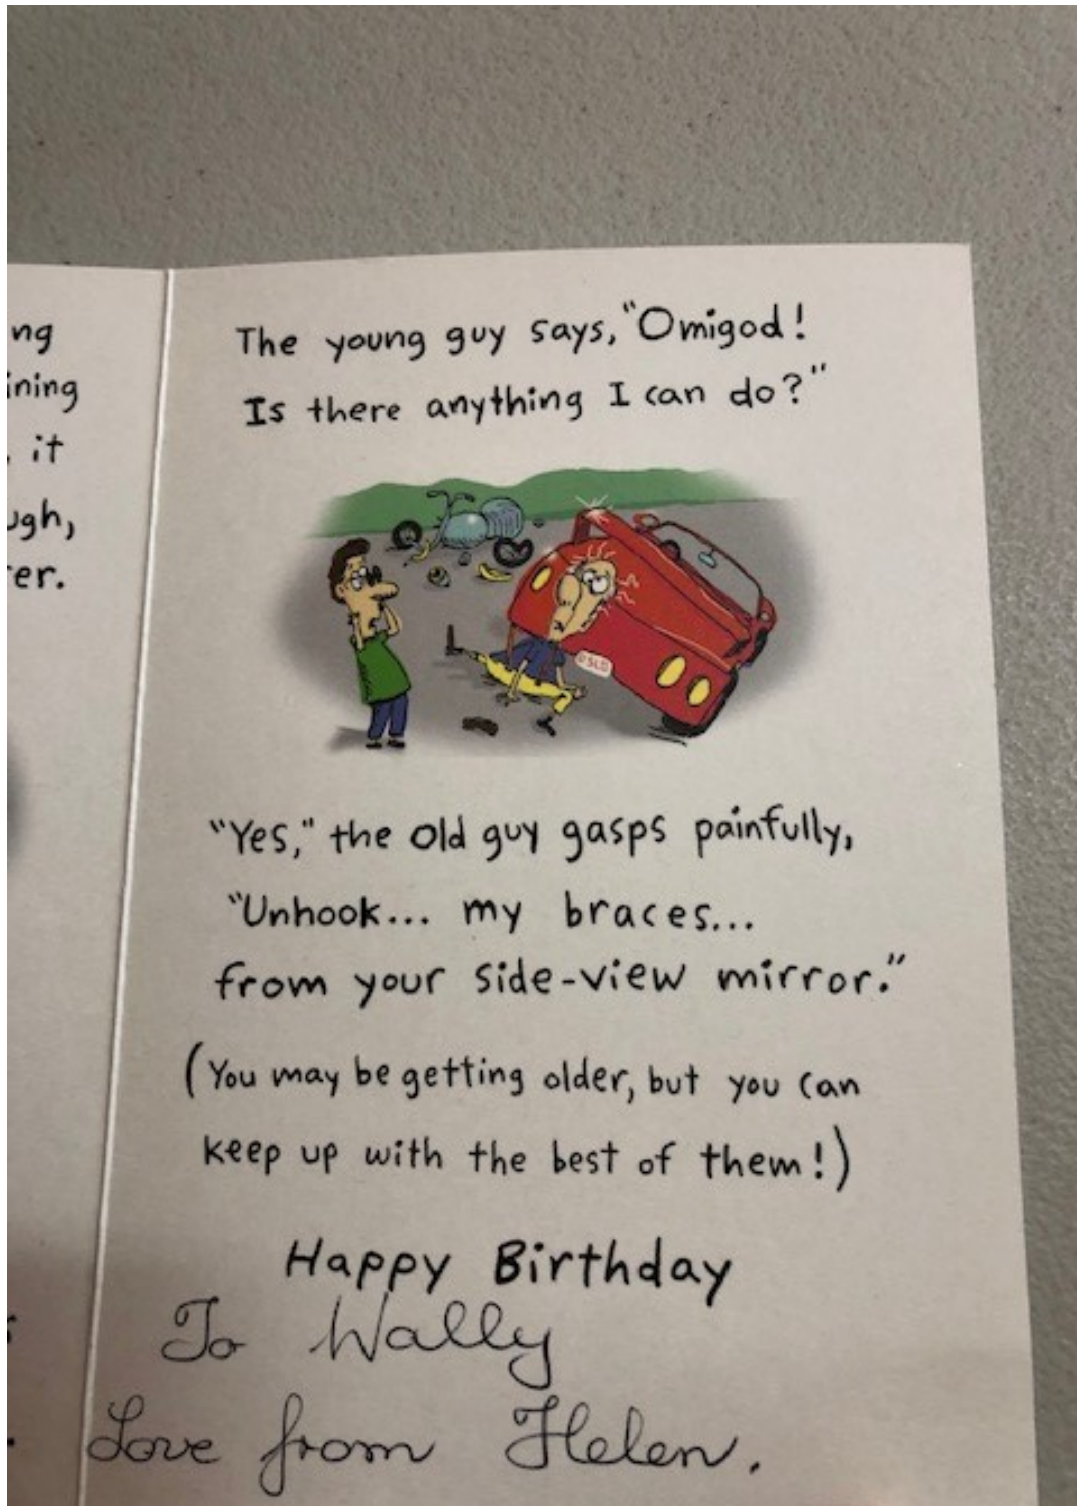 ng
ining
it
ugh,
er.
The young guy says, "Omigod!
Is there anything I can do?"
"Yes," the old guy gasps painfully,
"Unhook... my braces...
from your side-view mirror."
(You may be getting older, but you can
keep up with the best of them!)
Happy Birthday
To Wally
Love from Helen.